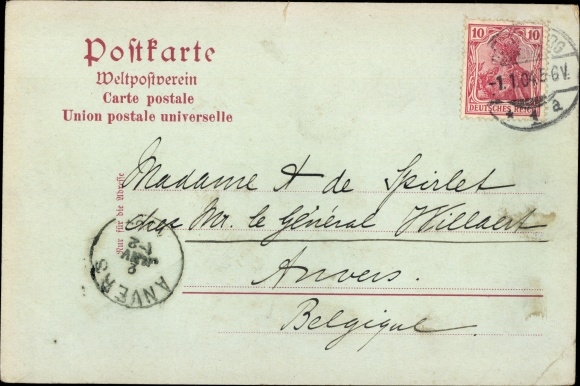 Postkarte
Weltpostverein
Carte postale
Union postale universelle
10 10
DEUTSCHES REICH
-1.1.04.5-6V.
* 1 a
Nur für die Adresse
Madame A de Spirlet
chez Mr. le Général Willaert
Anvers.
Belgique.
ANVERS